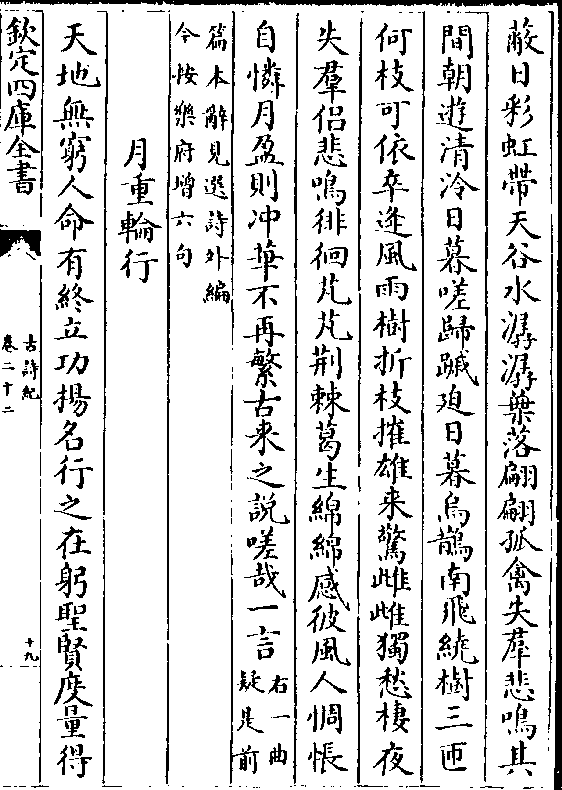 蔽日彩虹帶天谷水潺潺葉落翩翩孤禽失羣悲鳴其
間朝遊清冷日暮嗟歸蹴迫日暮烏鵲南飛繞樹三匝
何枝可依卒逢風雨樹折枝摧雄来驚雌雌獨愁棲夜
失羣侶悲鳴徘徊芃芃荆棘葛生綿綿感彼風人惆悵
自憐月盈則冲華不再繁古来之說嗟哉一言右一曲疑是前
篇本辭見選詩外編
今按樂府增六句
月重輪行
天地無窮人命有終立功揚名行之在躬聖賢度量得
欽定四庫全書
古詩紀
卷二十二
十九